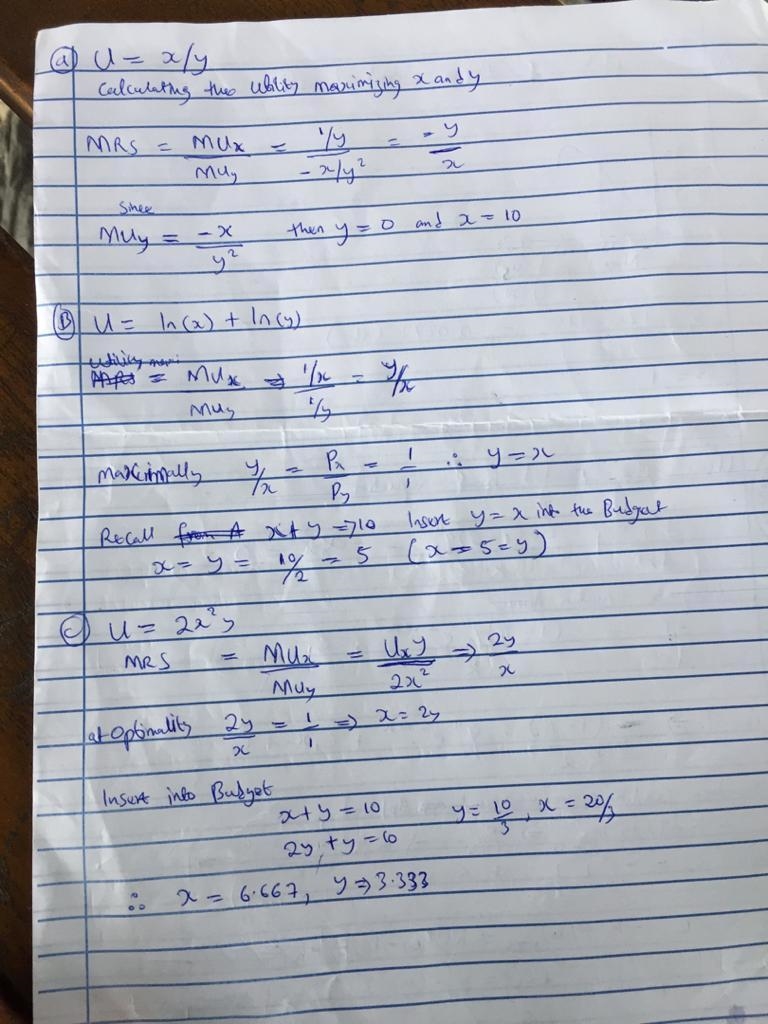 (a) U = x/y
Calculating the Utility maximizing x and y
MRS = MUx/MUy = (1/y)/(-x/y²) = -y/x
Since
MUy = -x/y² then y = 0 and x = 10
(B) U = ln(x) + ln(y)
Utility maxi
MRS = MUx/MUy ⇒ (1/x)/(1/y) = y/x
Maximally y/x = Px/Py = 1/1 ∴ y = x
Recall from A x + y ⇒ 10 Insert y = x into the Budget
x = y = 10/2 = 5 (x = 5 = y)
(C) U = 2x²y
MRS = MUx/MUy = Uxy/2x² ⇒ 2y/x
at Optimality 2y/x = 1/1 ⇒ x = 2y
Insert into Budget
x + y = 10 y = 10/3, x = 20/3
2y + y = 10
∴ x = 6.667, y ⇒ 3.333